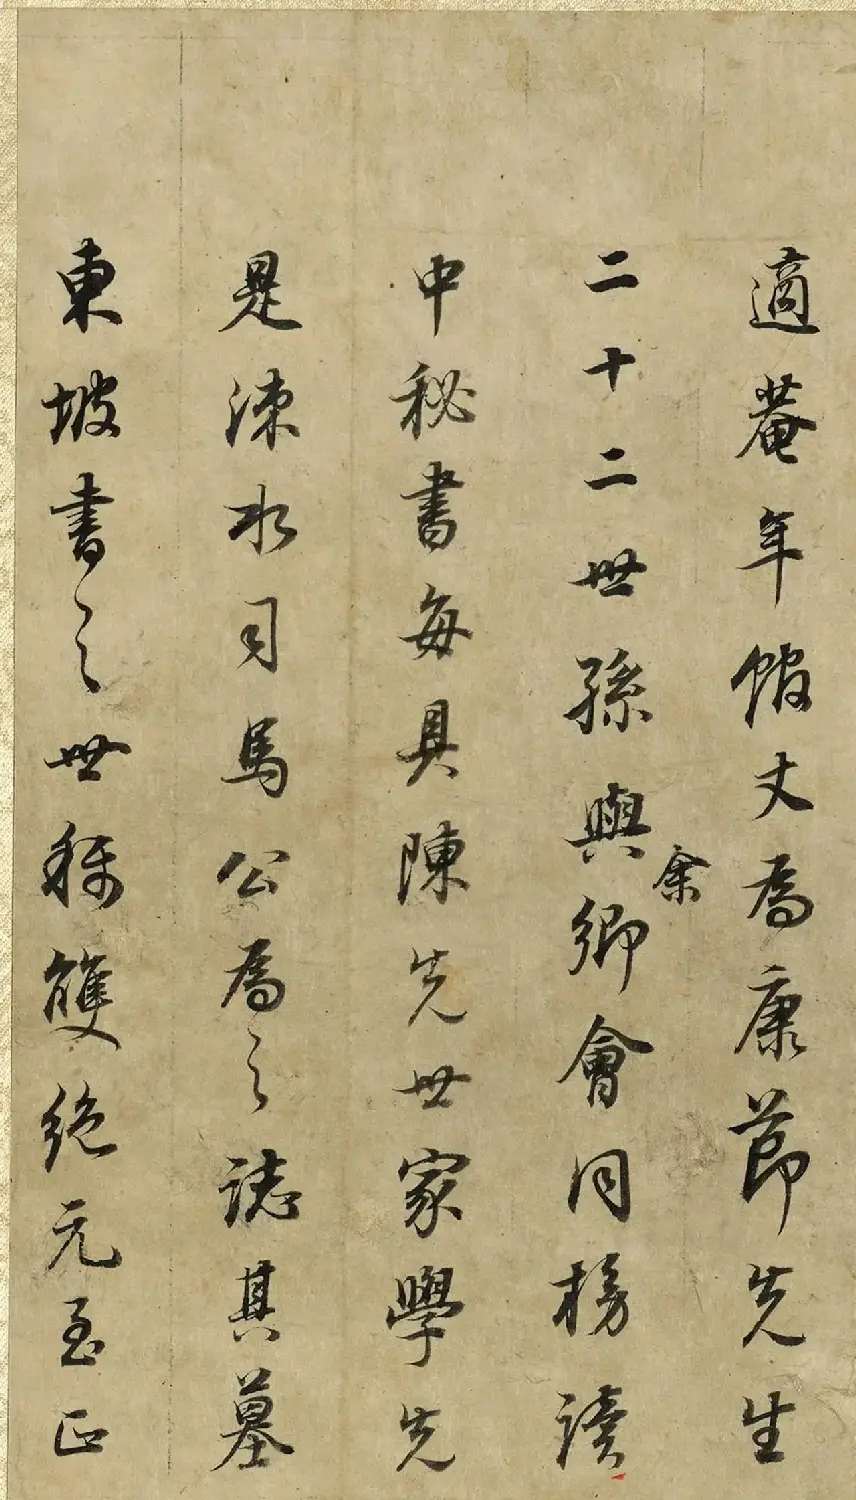 適菴年館丈爲康節先生
二十二世孫與余鄉會同榜讀
中秘書每具陳先世家學先
是涑水司馬公爲之誌其墓
東坡書之世稱雙絶元至正